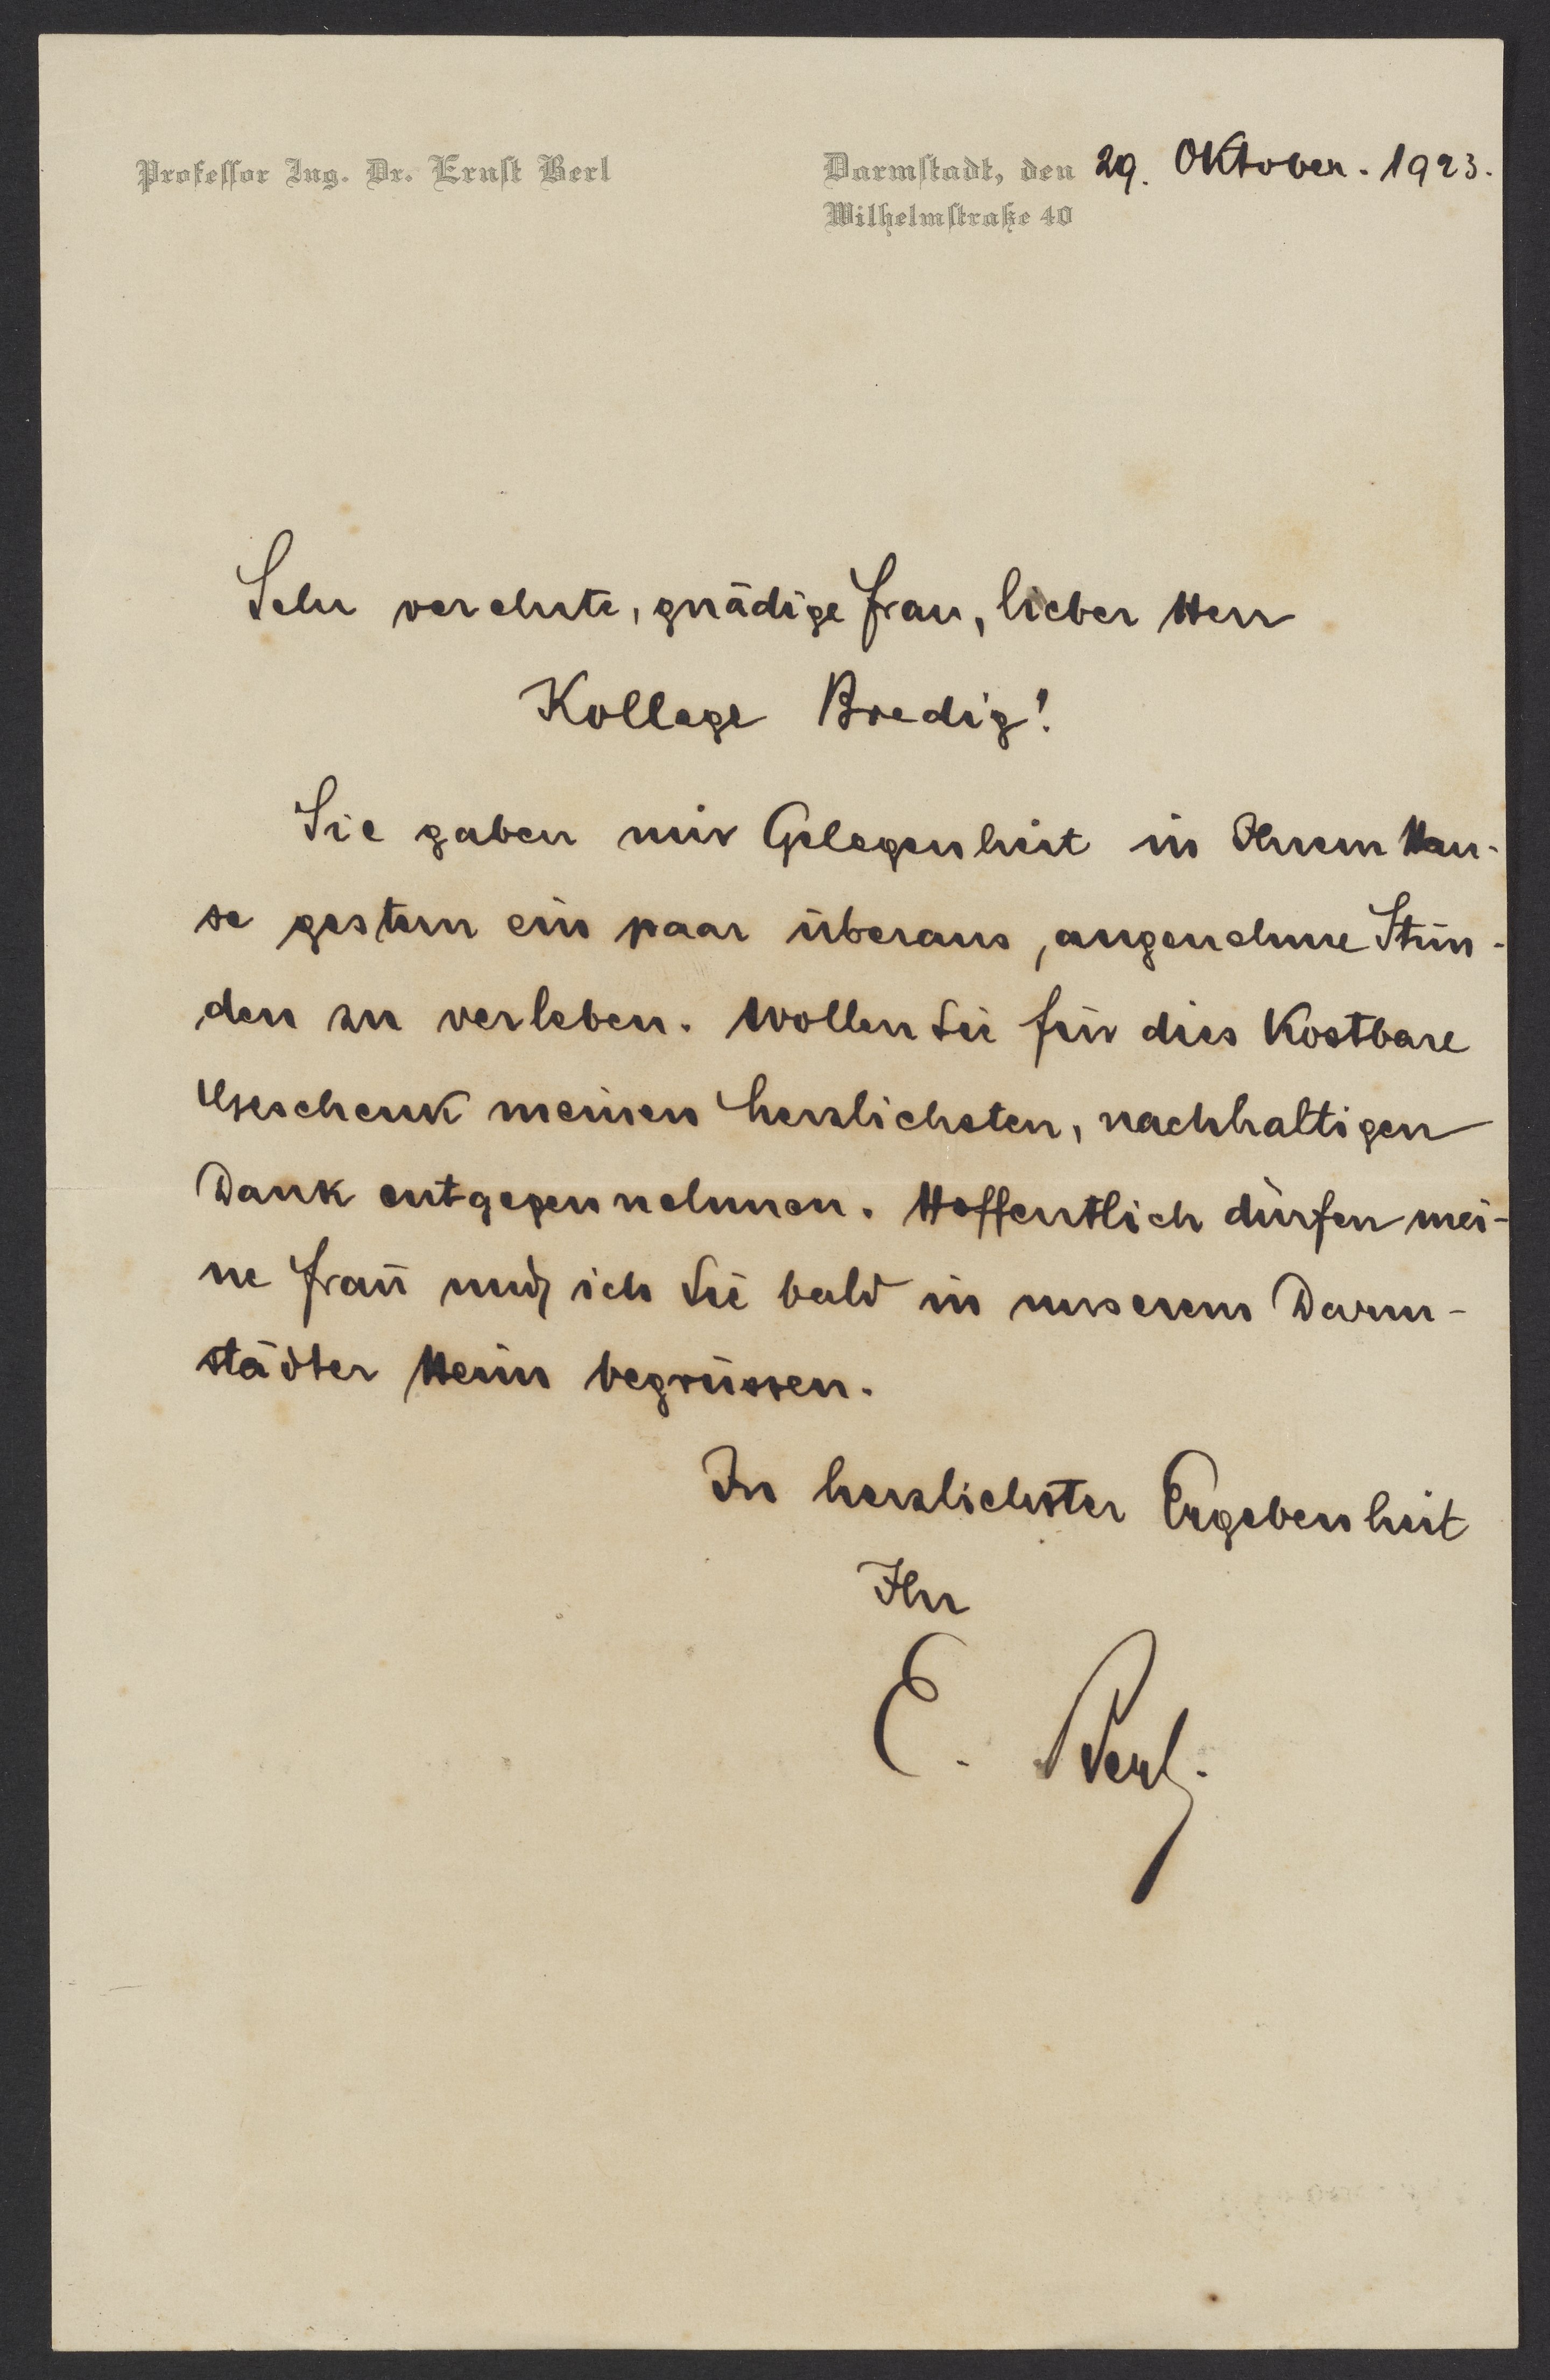 Professor Ing. Dr. Ernst Berl
Darmstadt, den 29. Oktober. 1923.
Wilhelmstraße 40
Sehr verehrte, gnädige Frau, lieber Herr
Kollege Bredig!
Sie gaben mir Gelegenheit in Ihrem Hau-
se gestern ein paar überaus, angenehme Stun-
den zu verleben. Wollen Sie für dies kostbare
Geschenk meinen herzlichsten, nachhaltigen
Dank entgegennehmen. Hoffentlich dürfen mei-
ne Frau und ich Sie bald in unserem Darm-
städter Heim begrüssen.
In herzlichster Ergebenheit
Ihr
E. Berl.